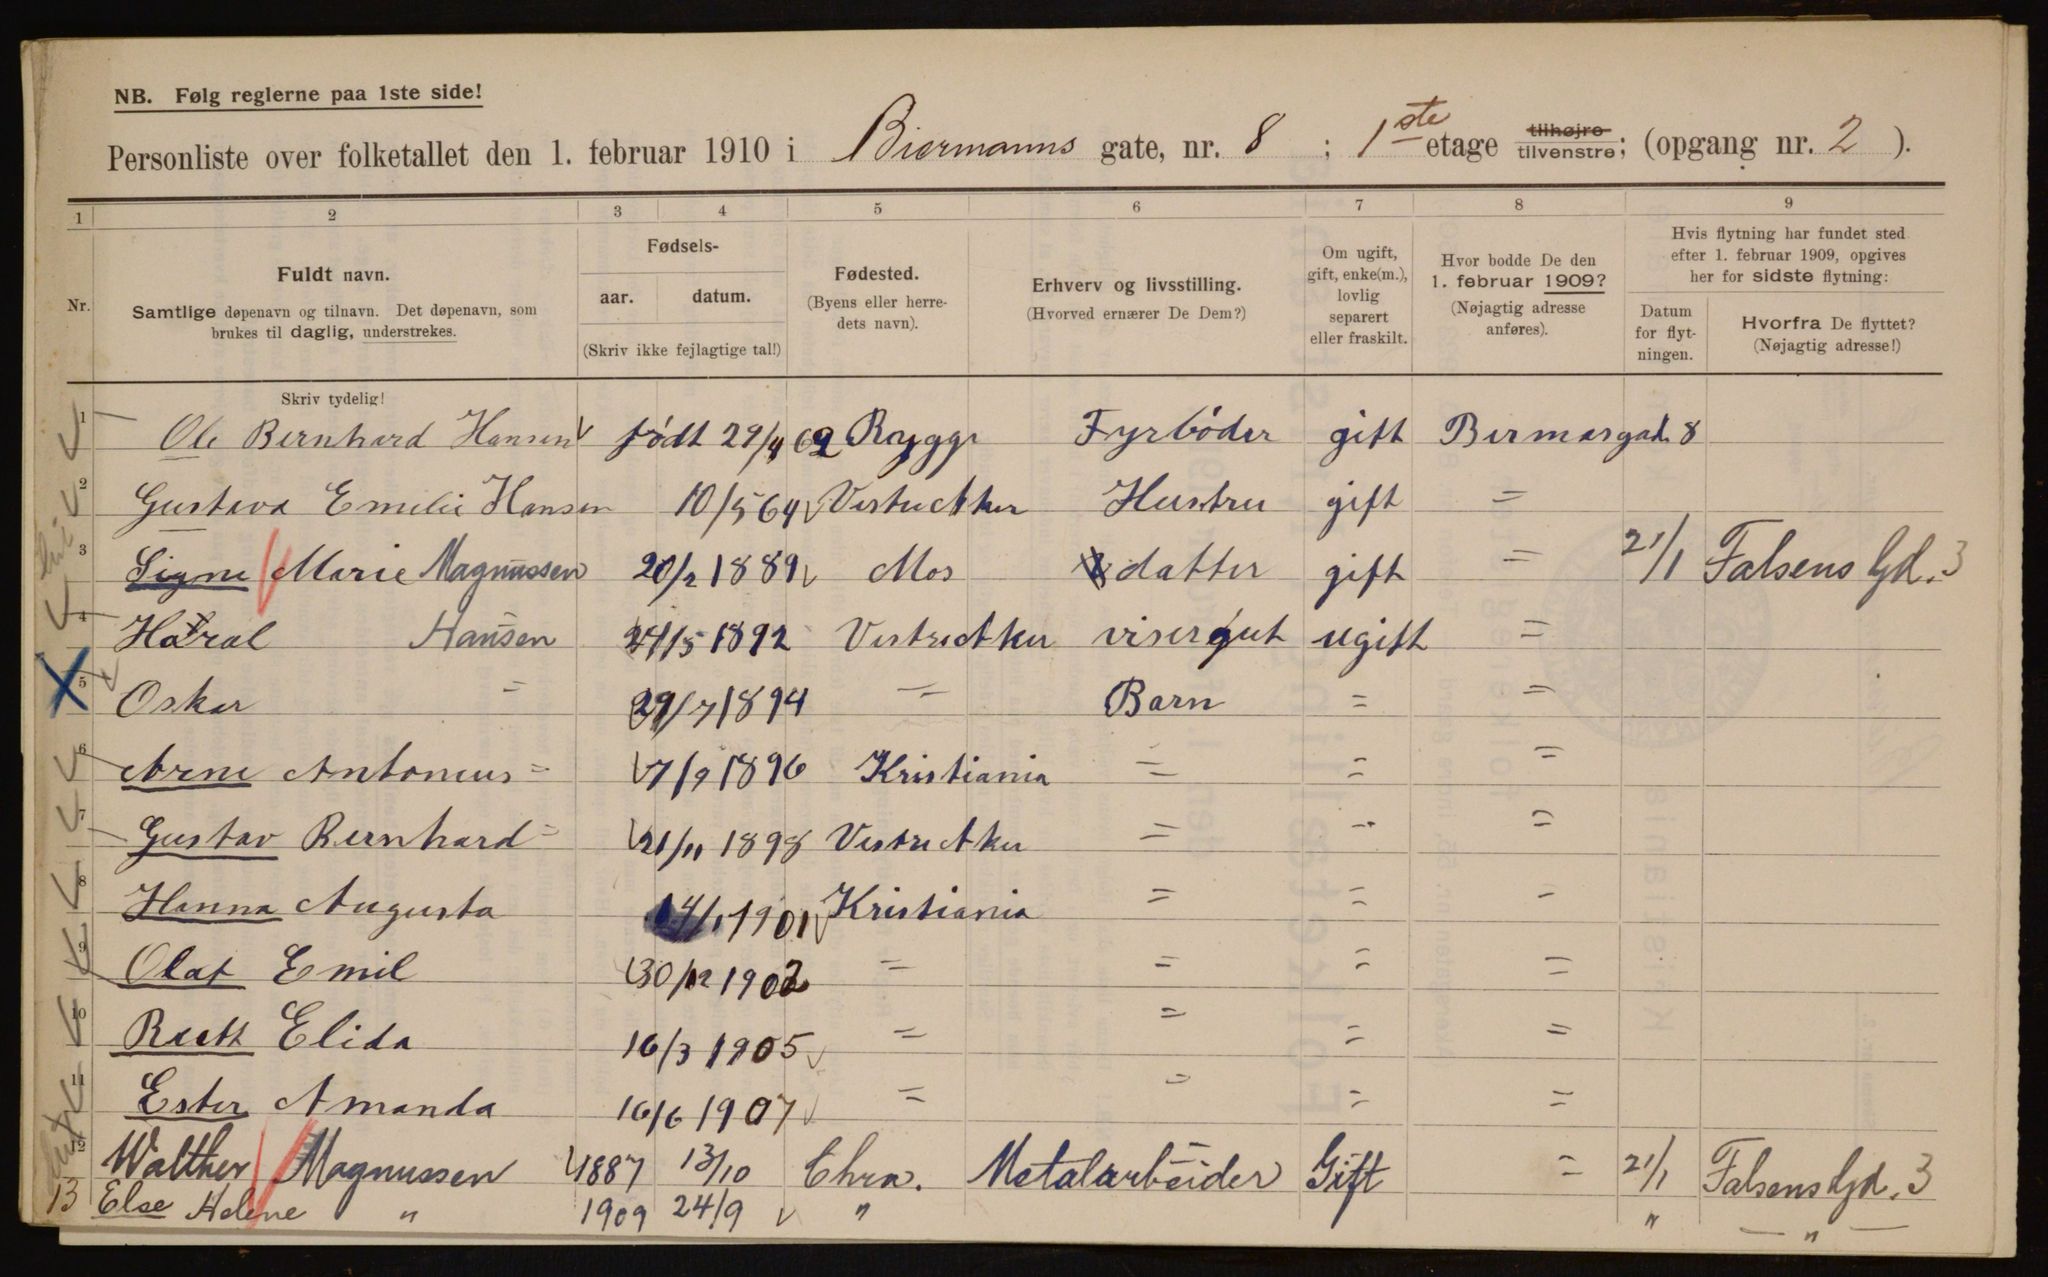 NB. Følg reglerne paa 1ste side!
Personliste over folketallet den 1. februar 1910 i Biermanns gate, nr. 8 ; 1ste etage tilhøjre tilvenstre; (opgang nr. 2 ).
1 2 3 4 5 6 7 8 9
Nr.
Fuldt navn.
Samtlige døpenavn og tilnavn. Det døpenavn, som
brukes til daglig, understrekes.
Fødsels-
aar. datum.
(Skriv ikke fejlagtige tal!)
Fødested.
(Byens eller herre-
dets navn).
Erhverv og livsstilling.
(Hvorved ernærer De Dem?)
Om ugift,
gift, enke(m.),
lovlig
separert
eller fraskilt.
Hvor bodde De den
1. februar 1909?
(Nøjagtig adresse
anføres).
Hvis flytning har fundet sted
efter 1. februar 1909, opgives
her for sidste flytning:
Datum
for flyt-
ningen.
Hvorfra De flyttet?
(Nøjagtig adresse!)
Skriv tydelig!
1 Ole Bernhard Hansen født 29/4 62 Rygge Fyrbøder gift Bermasgad. 8
2 Gustava Emilie Hansen 10/5 64 Vestre Aker Hustru gift =
3 Signe Marie Magnussen 20/2 1889 Mos datter gift = 21/1 Falsens Gd. 3
4 Haral Hansen 24/5 1892 Vestre Aker visergut ugift =
5 Oskar = 29/7 1894 = Barn = =
6 Arne Antonius = 7/9 1896 Kristiania = = =
7 Gustav Bernhard = 21/11 1898 Vestre Aker = = =
8 Hanna Augusta 14/1 1901 Kristiania = = =
9 Olaf Emil 30/12 1902 = = = =
10 Rutt Elida 16/3 1905 = = = =
11 Ester Amanda 16/6 1907 = = = =
12 Walther Magnussen 1887 13/10 Chra. Metalarbeider Gift = 21/1 Falsens Gd. 3
13 Else Helene " 1909 24/9 " " — " —